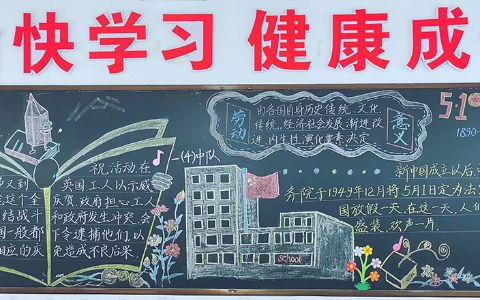 快学习 健康成
劳动
由各国自身历史传统、文化
传统、经济社会发展、渐进改
进、内生性演化要求决定
意义
5.1
1890-
一(4)中队
祝.活动.在
英国工人以示威
庆贺,政府担心工人
和政府发生冲突.会
下令逮捕他们,以
免造成不良后果.
又到
这个全
结战斗
国一般都
相应的庆
新中国成立以后,
务院于1949年12月将5月1日定为法
国放假一天.在这一天,人们
盛装.欢声一片.
school